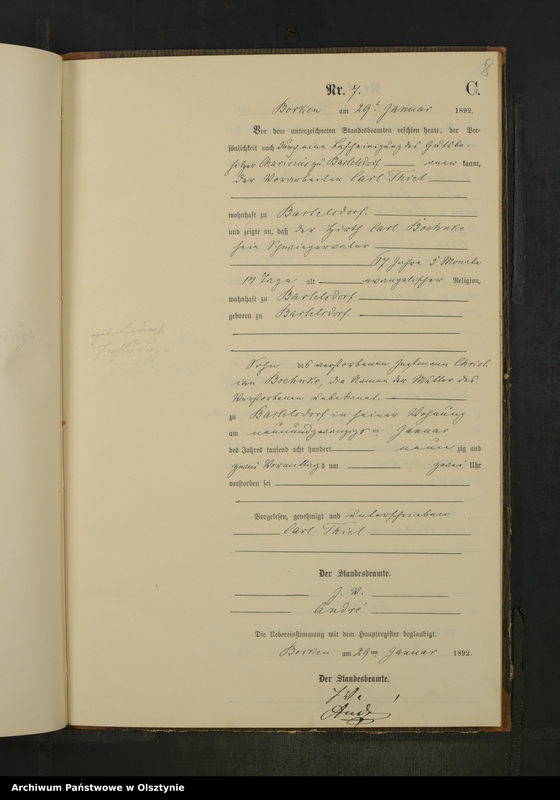 8
Nr. 7. C.
Borken am 29t Januar 1892.
Vor dem unterzeichneten Standesbeamten erschien heute, der Per-
sönlichkeit nach durch eine Bescheinigung des Gutsbe-
sitzer zu Bartelsdorf kannt,
der Vorarbeiter Carl Thiel
wohnhaft zu Bartelsdorf.
und zeigte an, daß der Hirth Carl Böehnke
sein Schwiegervater
67 Jahre 5 Monate
14 Tage alt evangelischer Religion,
wohnhaft zu Bartelsdorf
geboren zu Bartelsdorf
Sohn des verstorbenen Instmann Christ-
ian Boehnke, die Namen der Mutter des
Verstorbenen unbekannt.
zu Bartelsdorf in seiner Wohnung
am neunundzwanzigsten Januar
des Jahres tausend acht hundert neun zig und
zwei Vormittags um zwei Uhr
verstorben sei
Vorgelesen, genehmigt und unterschrieben
Carl Thiel
Der Standesbeamte.
J. V.
André
Die Uebereinstimmung mit dem Hauptregister beglaubigt.
Borken am 29ten Januar 1892.
Der Standesbeamte.
J. V.
André
Archiwum Państwowe w Olsztynie